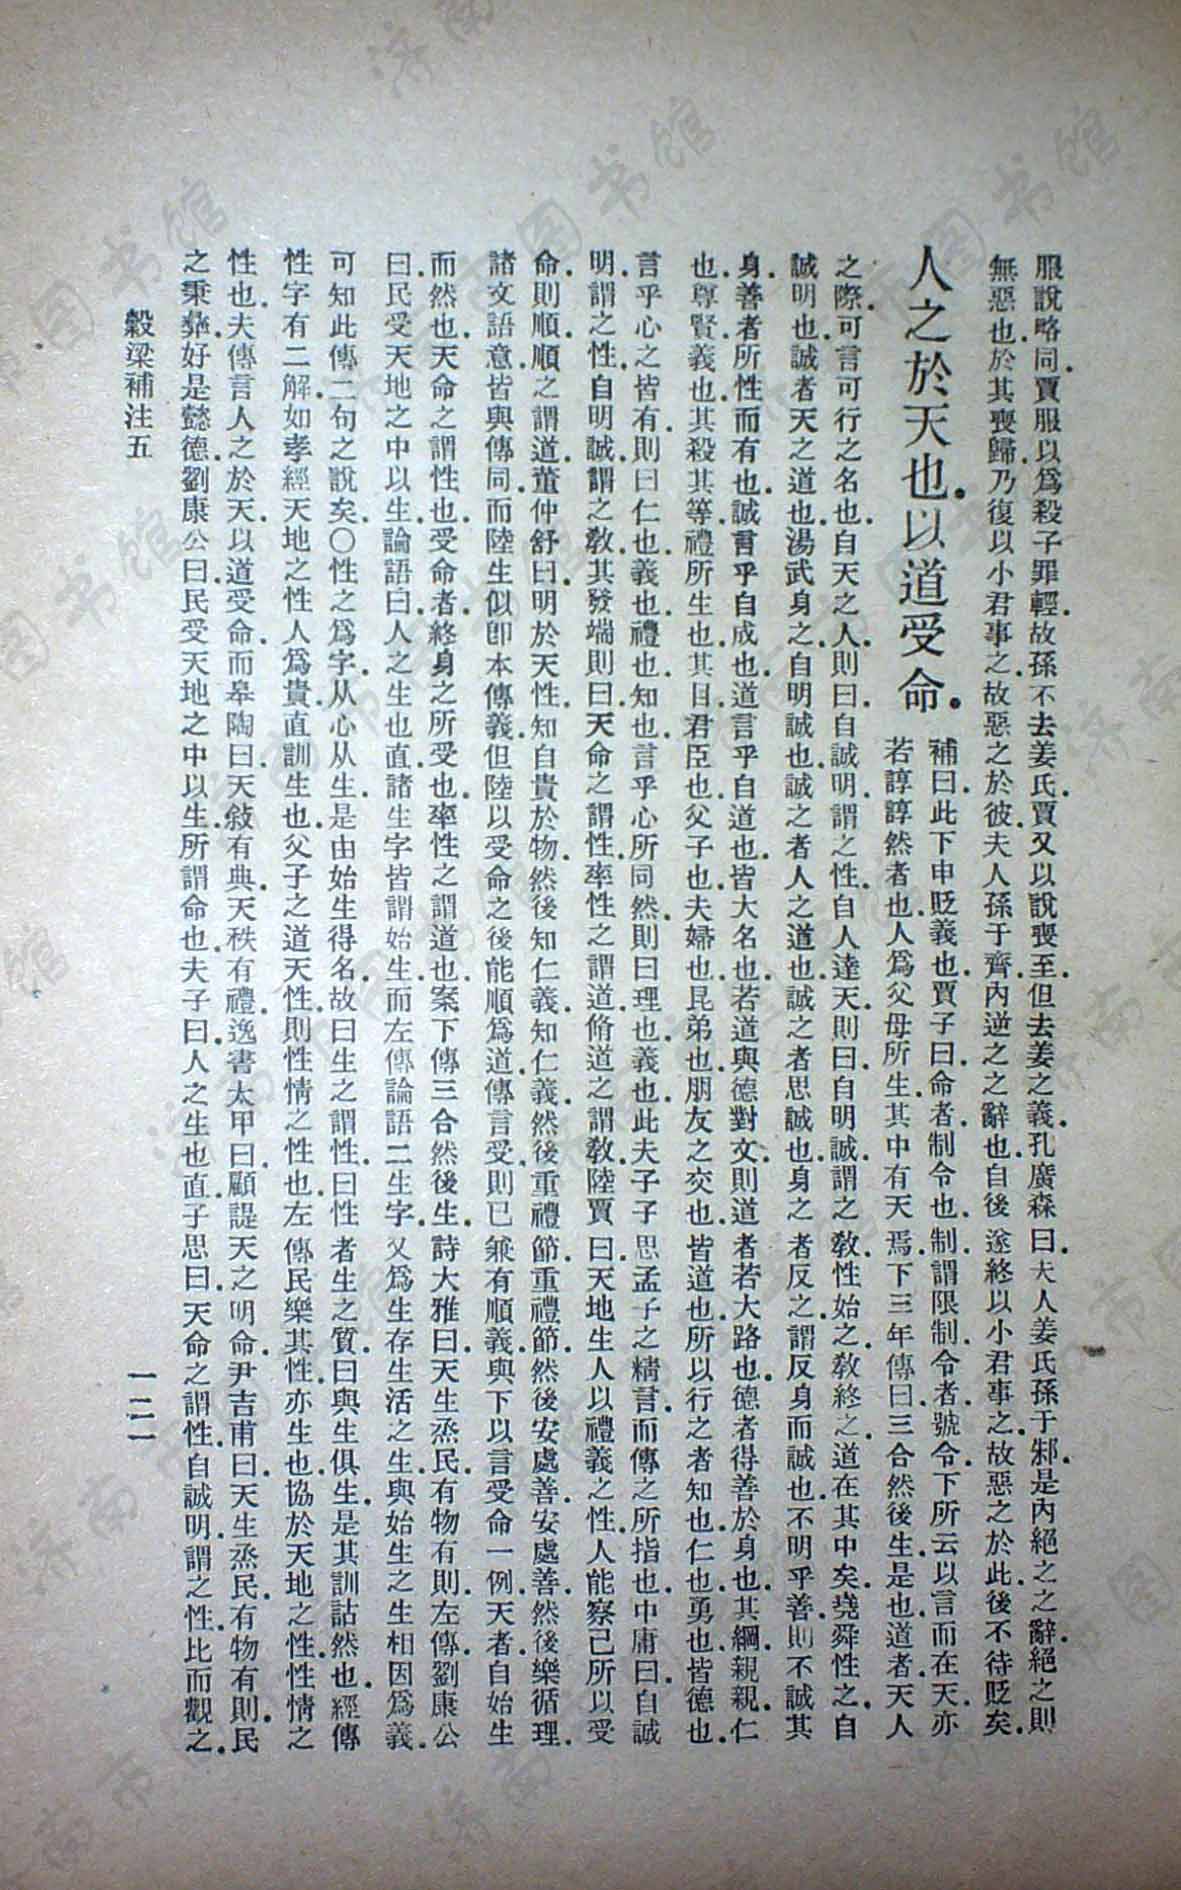 服說略同.賈服以爲殺子罪輕.故孫不去姜氏.賈又以說喪至.但去姜之義.孔廣森曰.夫人姜氏孫于邾.是內絕之之辭.絕之則
無惡也.於其喪歸.乃復以小君事之.故惡之於彼.夫人孫于齊.內逆之之辭也.自後遂終以小君事之.故惡之於此.後不待貶矣.
人之於天也.以道受命.
補曰.此下申貶義也.賈子曰.命者.制令也.制.謂限制.令者.號令.下所云以言.而在天亦
若諄諄然者也.人爲父母所生.其中有天焉.下三年傳曰.三合然後生.是也.道者.天人
之際.可言可行之名也.自天之人.則曰自誠明.謂之性.自人達天.則曰自明誠.謂之敎.性始之.敎終之.道在其中矣.堯舜性之.自
誠明也.誠者天之道也.湯武身之.自明誠也.誠之者人之道也.誠之者.思誠也.身之者.反之.謂反身而誠也.不明乎善.則不誠其
身.善者.所性而有也.誠言乎自成也.道言乎自道也.皆大名也.若道與德對文.則道者若大路也.德者得善於身也.其綱.親親.仁
也.尊賢.義也.其殺其等.禮所生也.其目.君臣也.父子也.夫婦也.昆弟也.朋友之交也.皆道也.所以行之者.知也.仁也.勇也.皆德也.
言乎心之皆有.則曰仁也.義也.禮也.知也.言乎心所同然.則曰理也.義也.此夫子子思孟子之精言.而傳之所指也.中庸曰.自誠
明.謂之性.自明誠.謂之敎.其發端則曰.天命之謂性.率性之謂道.脩道之謂敎.陸賈曰.天地生人以禮義之性.人能察己所以受
命則順.順之謂道.董仲舒曰.明於天性.知自貴於物.然後知仁義.知仁義.然後重禮節.重禮節.然後安處善.安處善.然後樂循理.
諸文語意.皆與傳同.而陸生似卽本傳義.但陸以受命之後.能順爲道.傳言受.則已兼有順義.與下以言受命一例.天者.自始生
而然也.天命之謂性也.受命者.終身之所受也.率性之謂道也.案下傳三合然後生.詩大雅曰.天生烝民.有物有則.左傳.劉康公
曰.民受天地之中以生.論語曰.人之生也直.諸生字皆謂始生.而左傳論語二生字.又爲生存生活之生.與始生之生相因爲義.
可知此傳二句之說矣.○性之爲字.从心从生.是由始生得名.故曰生之謂性.曰性者生之質.曰與生俱生.是其訓詁然也.經傳
性字有二解.如孝經天地之性.人爲貴.直訓生也.父子之道天性.則性情之性也.左傳民樂其性.亦生也.協於天地之性.性情之
性也.夫傳言人之於天.以道受命.而皋陶曰.天敍有典.天秩有禮.逸書太甲曰.顧諟天之明命.尹吉甫曰.天生烝民.有物有則.民
之秉彝.好是懿德.劉康公曰.民受天地之中以生.所謂命也.夫子曰.人之生也直.子思曰.天命之謂性.自誠明.謂之性.比而觀之.
穀梁補注五
一二一